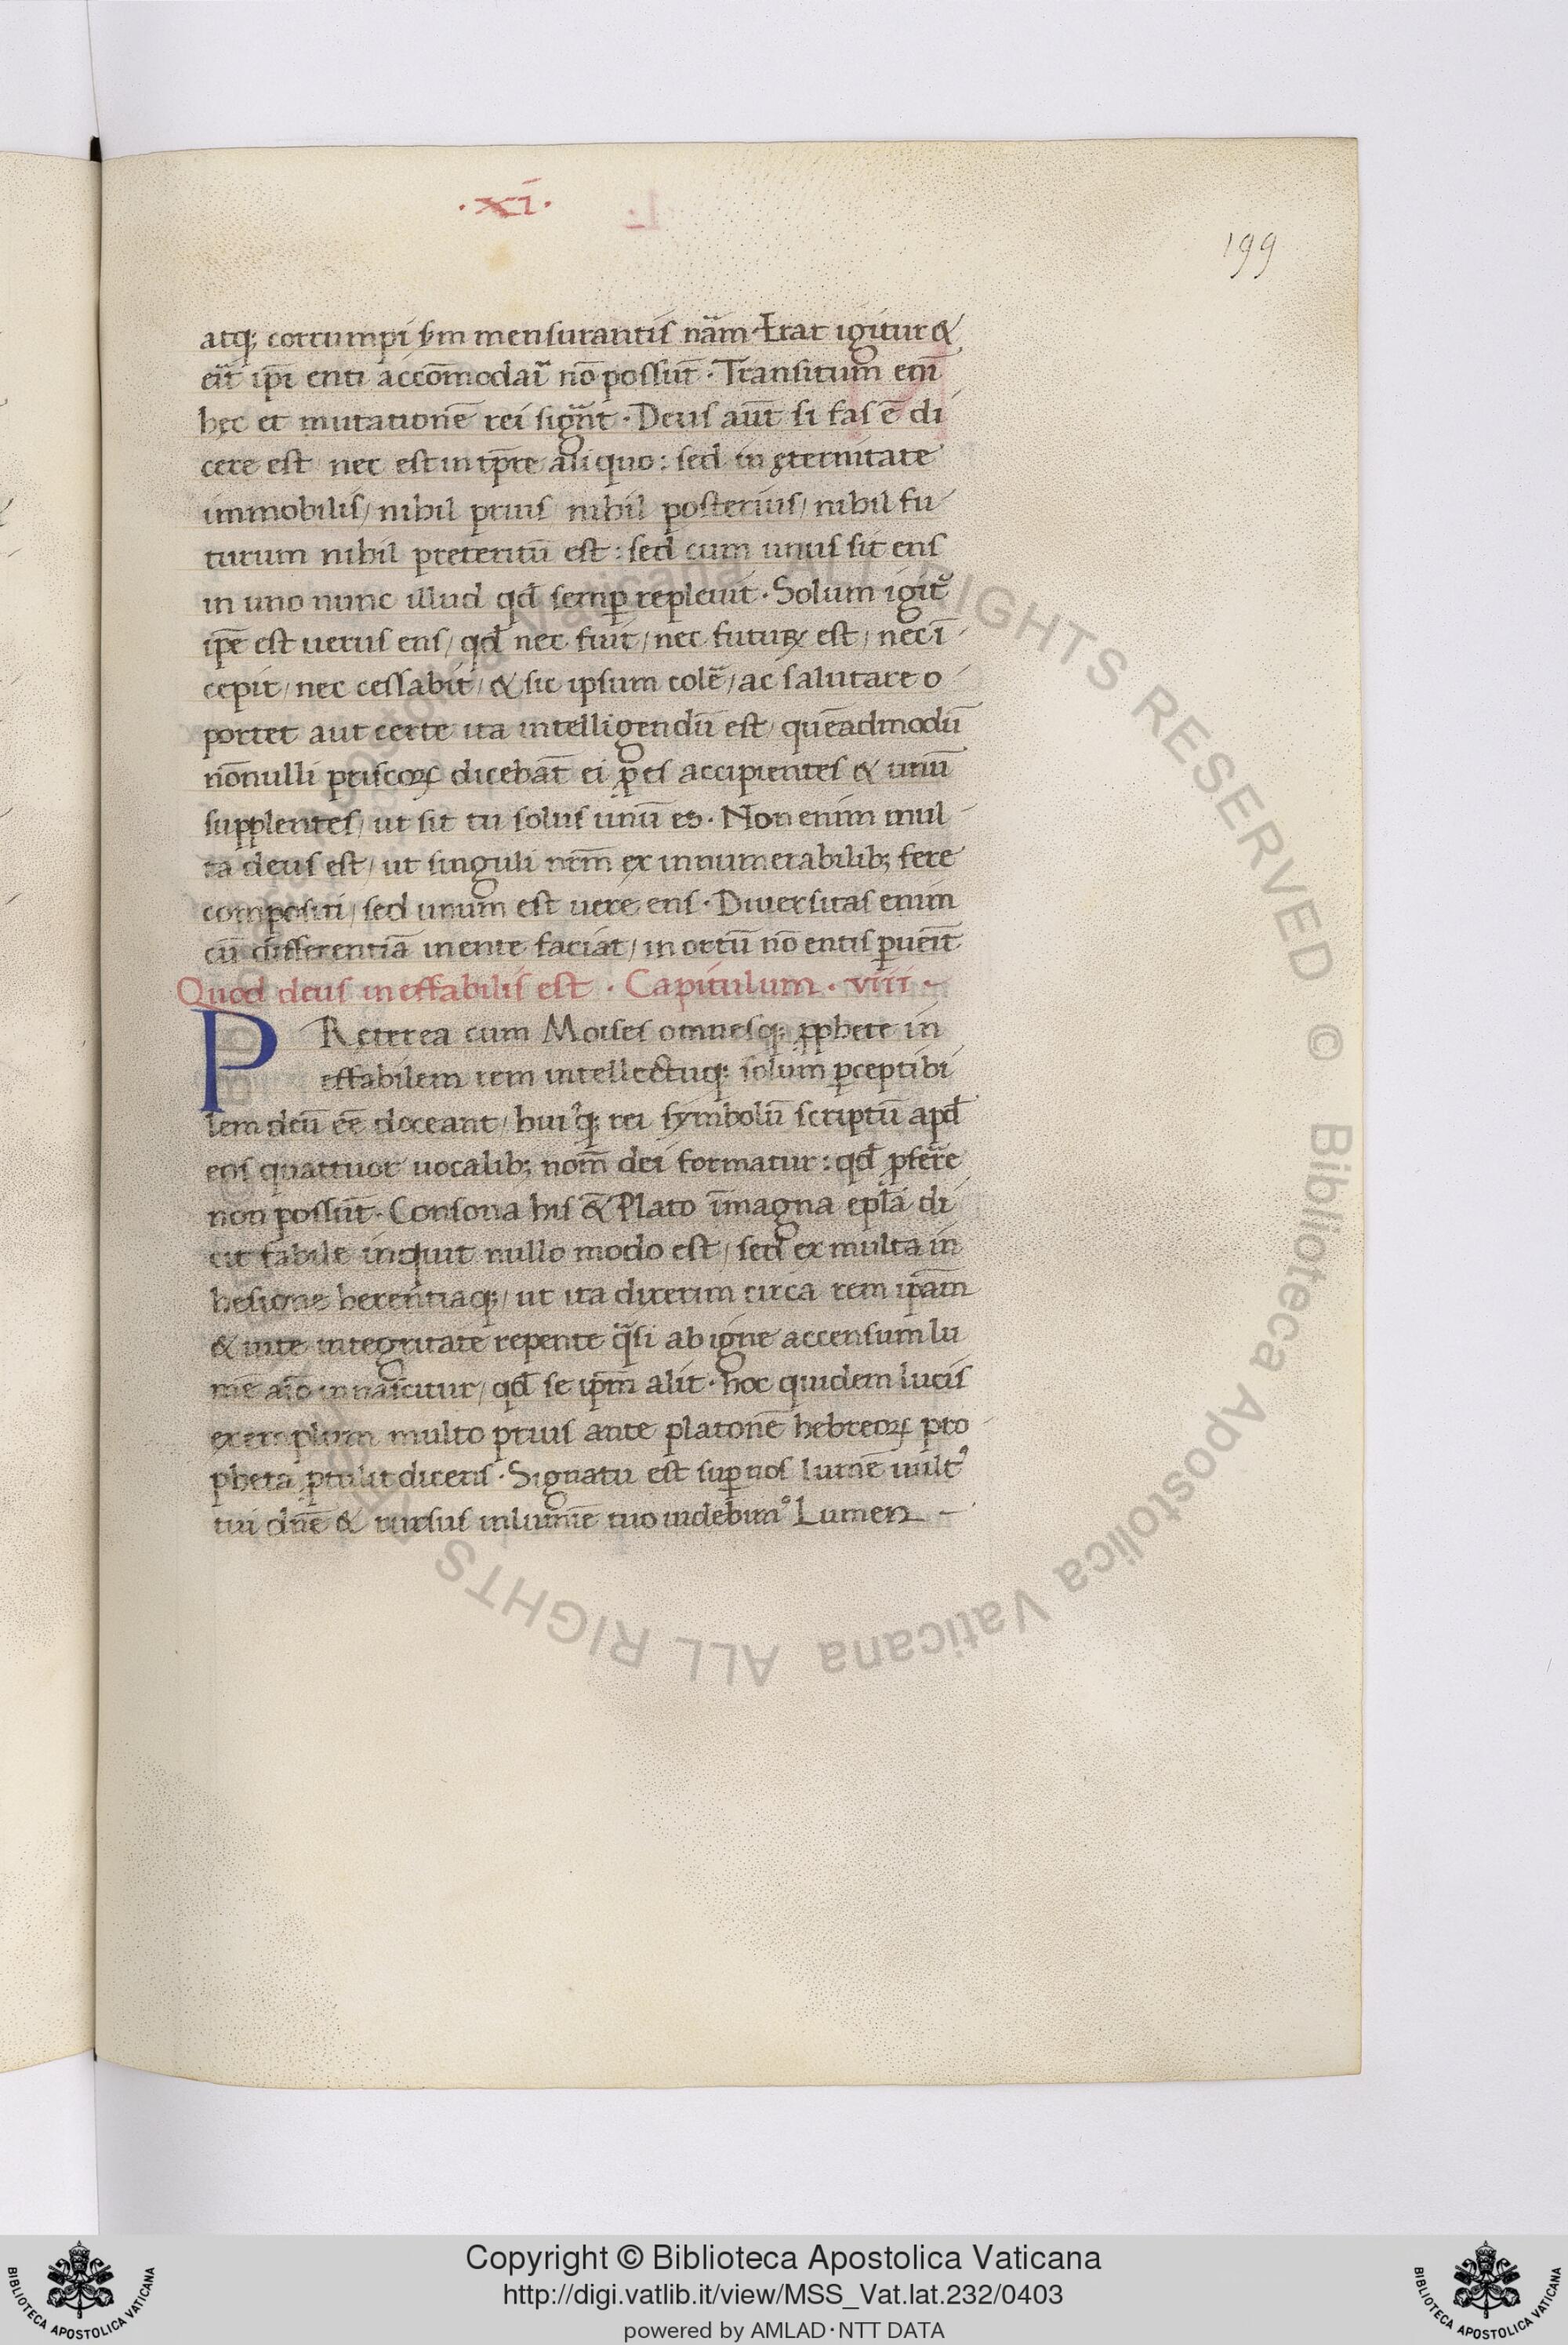 ·xi·
199
atq; corrumpi sm mensurantis nãm. Erat igitur &
erit ipi enti accõmodari nõ possũt. Transitum eni
hęc et mutationẽ rei signãt. Deus aut si fas ẽ di
cere est nec est in tpre aliquo: sed in ęternitate
immobilis/ nihil prius nihil posterius/ nihil fu
turum nihil preteritũ est: sed cum unus sit ens
in uno nunc illud qd semp repleuit. Solum igit
ipe est uerus ens/ qd nec fuit/ nec futurꝝ est/ nec ĩ
cepit/ nec cessabit/ & sic ipsum colẽ/ ac salutare o
portet aut certe ita intelligendũ est/ quẽadmodũ
nõnulli priscoꝝ dicebãt ei ꝑ es accipientes & unũ
supplentes/ ut sit tu solus unũ es. Non enim mul
ta deus est/ ut singuli nrm ex innumerabilib; fere
compositi/ sed unum est uere ens. Diuersitas enim
cũ differentiã in ente faciat/ in ortũ nõ entis ꝑueit
Quod deus ineffabilis est. Capitulum. viii.
PReterea cum Moises omnesq; ꝓphete in
effabilem rem intellectuq; solum ꝑceptibi
lem deũ eẽ doceant/ huiq; rei symbolũ scriptũ apd
eos quattuor uocalib; nom̃ dei formatur: qd ꝓferre
non possũt. Consona his & Plato ĩ magna epla di
cit fabile inquit nullo modo est/ sed ex multa in
hesione herentiaq;/ ut ita dixerim circa rem ipam
& uite integritate repente qsi ab igne accensum lu
mẽ aio innascitur/ qd se ipm alit. hoc quidem lucis
exemplum multo prius ante platonẽ hebreoꝝ pro
pheta ꝓtulit dicens. Signatu est suꝑ nos lumẽ uult
tui dnẽ & rursus in lumĩe tuo uidebim⁹ Lumen
Copyright © Biblioteca Apostolica Vaticana
http://digi.vatlib.it/view/MSS_Vat.lat.232/0403
powered by AMLAD·NTT DATA
BIBLIOTECA APOSTOLICA VATICANA
BIBLIOTECA APOSTOLICA VATICANA